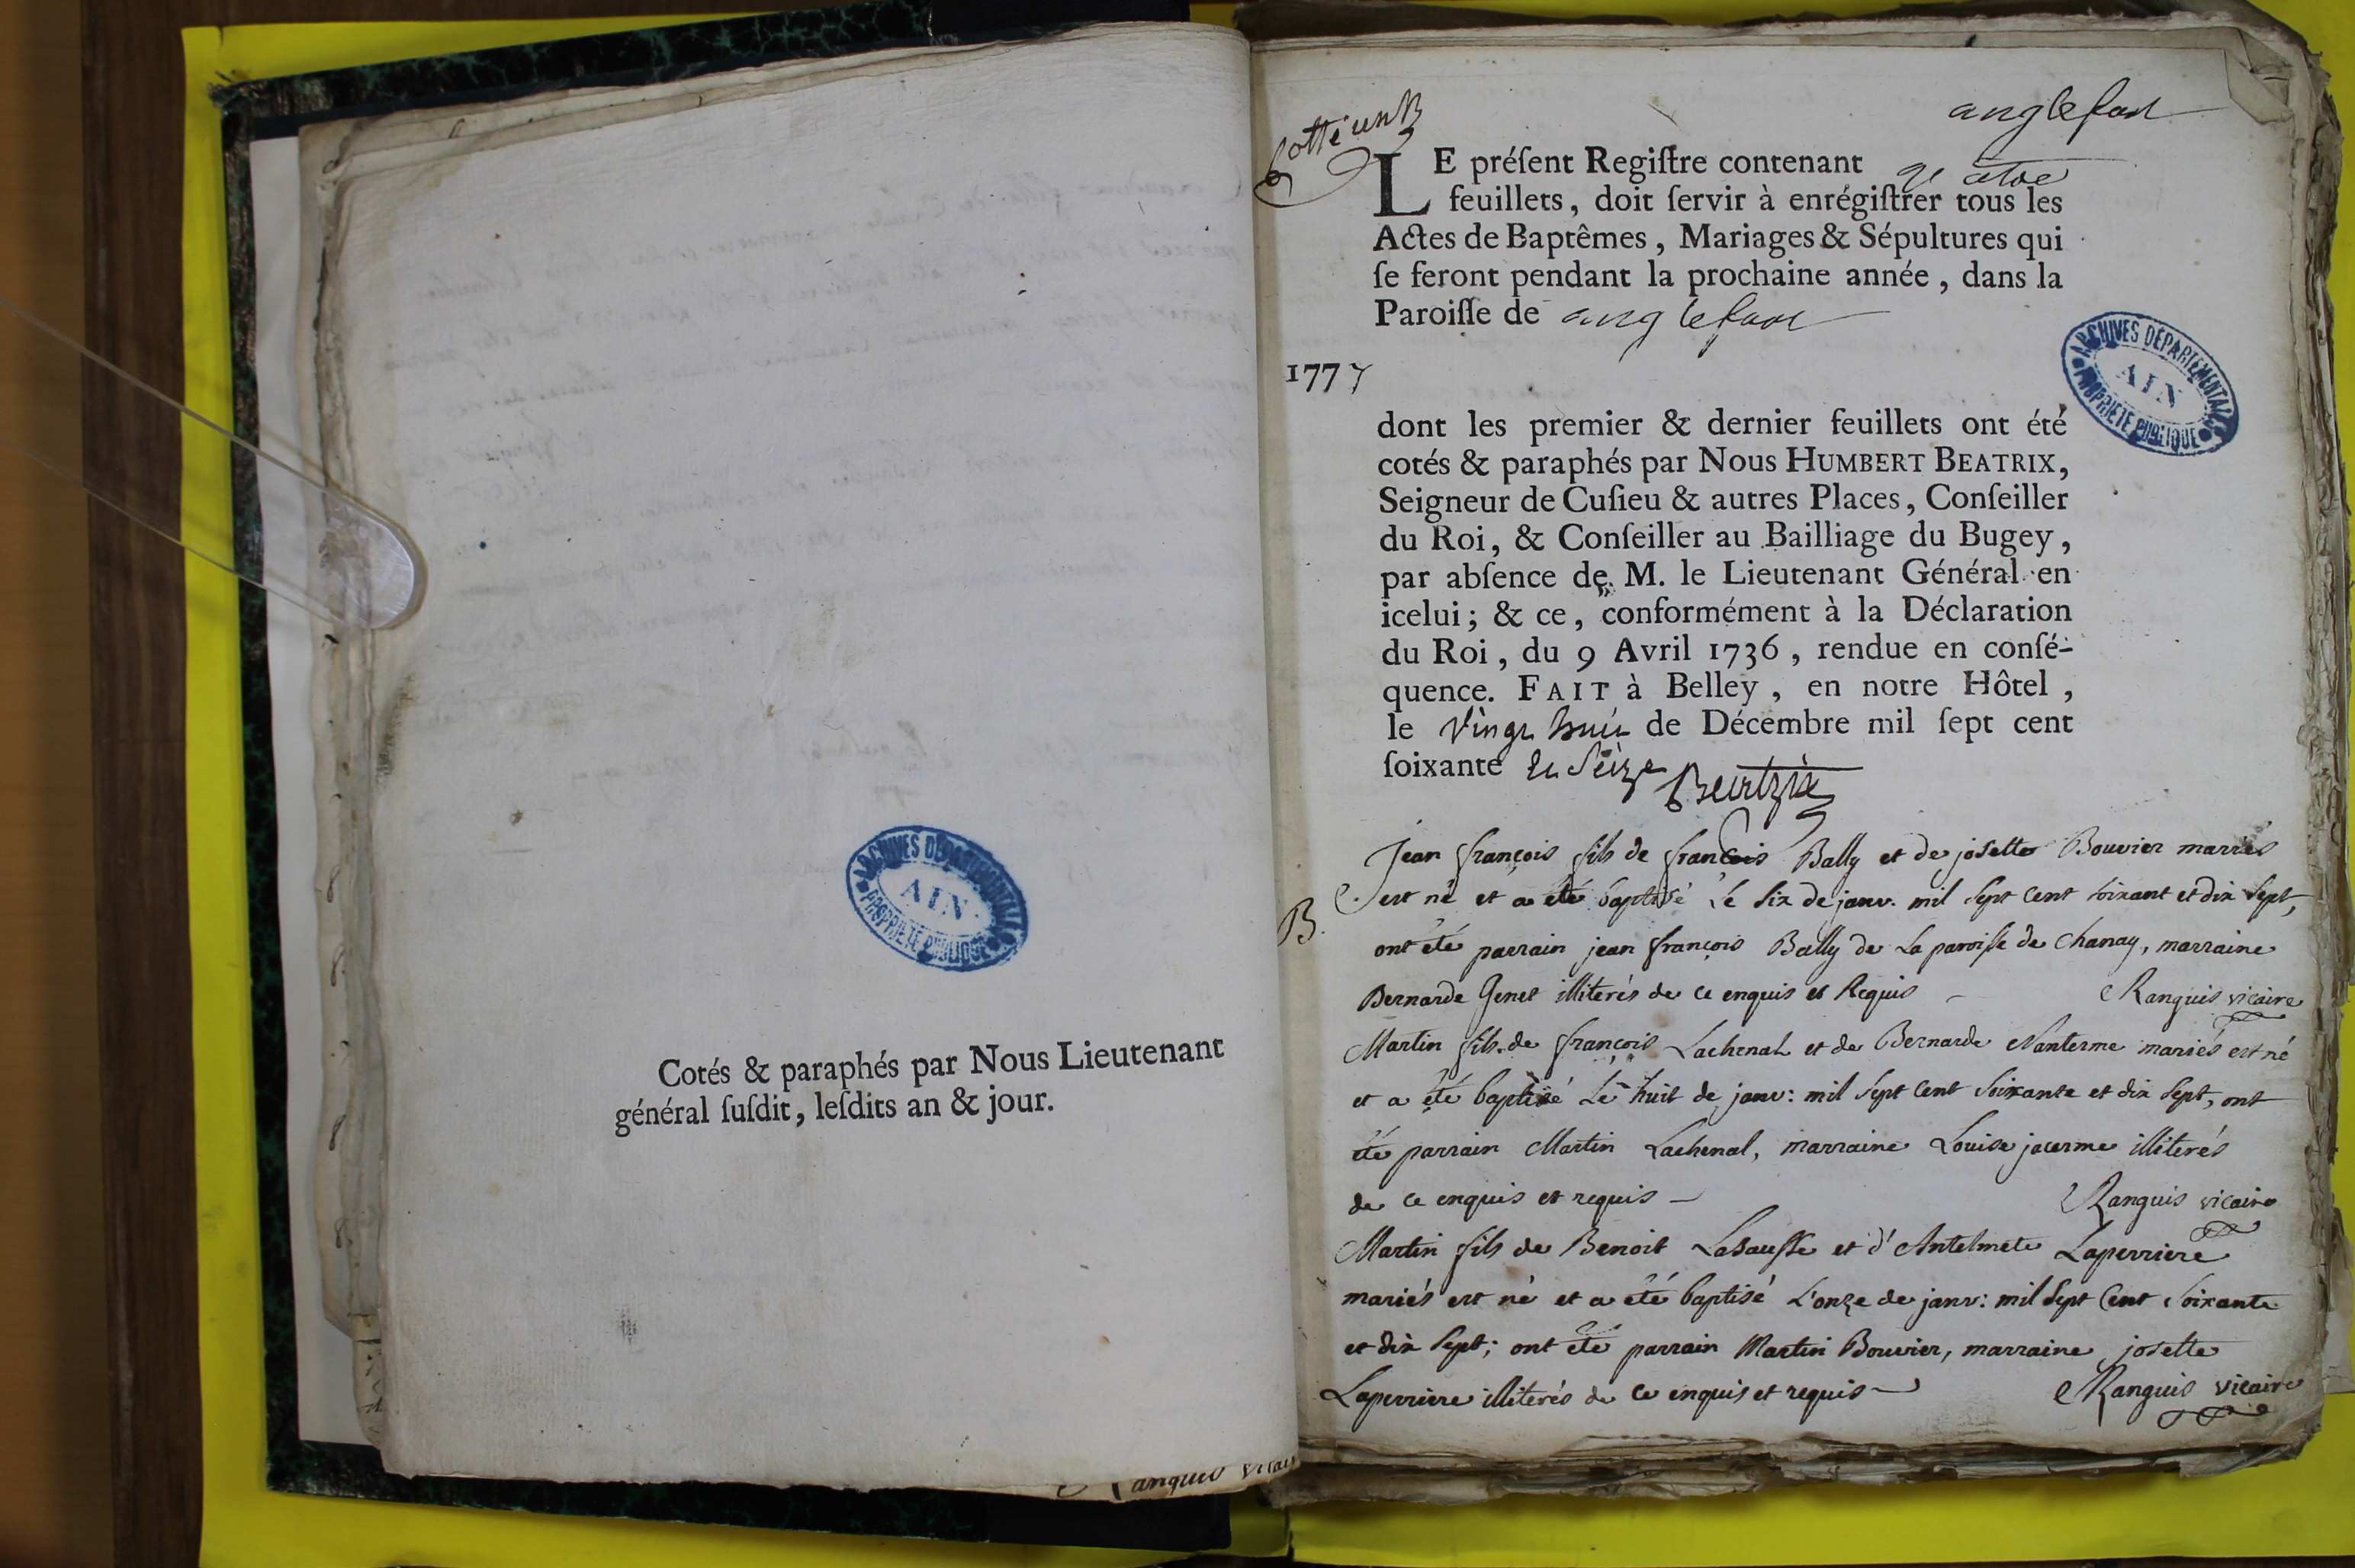 ARCHIVES DÉPARTEMENTALES
AIN
PROPRIÉTÉ PUBLIQUE
Cotés & paraphés par Nous Lieutenant
général ſuſdit, leſdits an & jour.
Ranguis vicai
Cotté un
anglefort
LE préſent Regiſtre contenant
feuillets, doit ſervir à enrégiſtrer tous les
Actes de Baptêmes, Mariages & Sépultures qui
ſe feront pendant la prochaine année, dans la
Paroiſſe de anglefort
1777
ARCHIVES DÉPARTEMENTALES
AIN
PROPRIÉTÉ PUBLIQUE
dont les premier & dernier feuillets ont été
cotés & paraphés par Nous HUMBERT BEATRIX,
Seigneur de Cuſieu & autres Places, Conſeiller
du Roi, & Conſeiller au Bailliage du Bugey,
par abſence de M. le Lieutenant Général en
icelui; & ce, conformément à la Déclaration
du Roi, du 9 Avril 1736, rendue en conſé-
quence. FAIT à Belley, en notre Hôtel,
le vingt huit de Décembre mil ſept cent
ſoixante et seize
Beatrix
Jean françois fils de françois Bally et de josette Bouvier mariés
est né et a été baptisé le six de janv. mil sept cent soixant et dix sept,
B.
ont été parrain jean françois Bally de La paroisse de Chanay, marraine
Bernarde Genet illiterés de ce enquis et Requis Ranguis vicaire
Martin fils de françois Lachenal et de Bernarde Nanterme mariés est né
et a été baptisé Le huit de janv: mil sept cent soixante et dix sept, ont
été parrain Martin Lachenal, marraine Louise jacerme illiterés
de ce enquis et requis — Ranguis vicaire
Martin fils de Benoit Lasausse et d'Antelmete Laperriere
mariés est né et a été baptisé L'onze de janv: mil sept Cent soixante
et dix sept; ont été parrain Martin Bouvier, marraine josette
Laperriere illiterés de ce enquis et requis — Ranguis vicaire